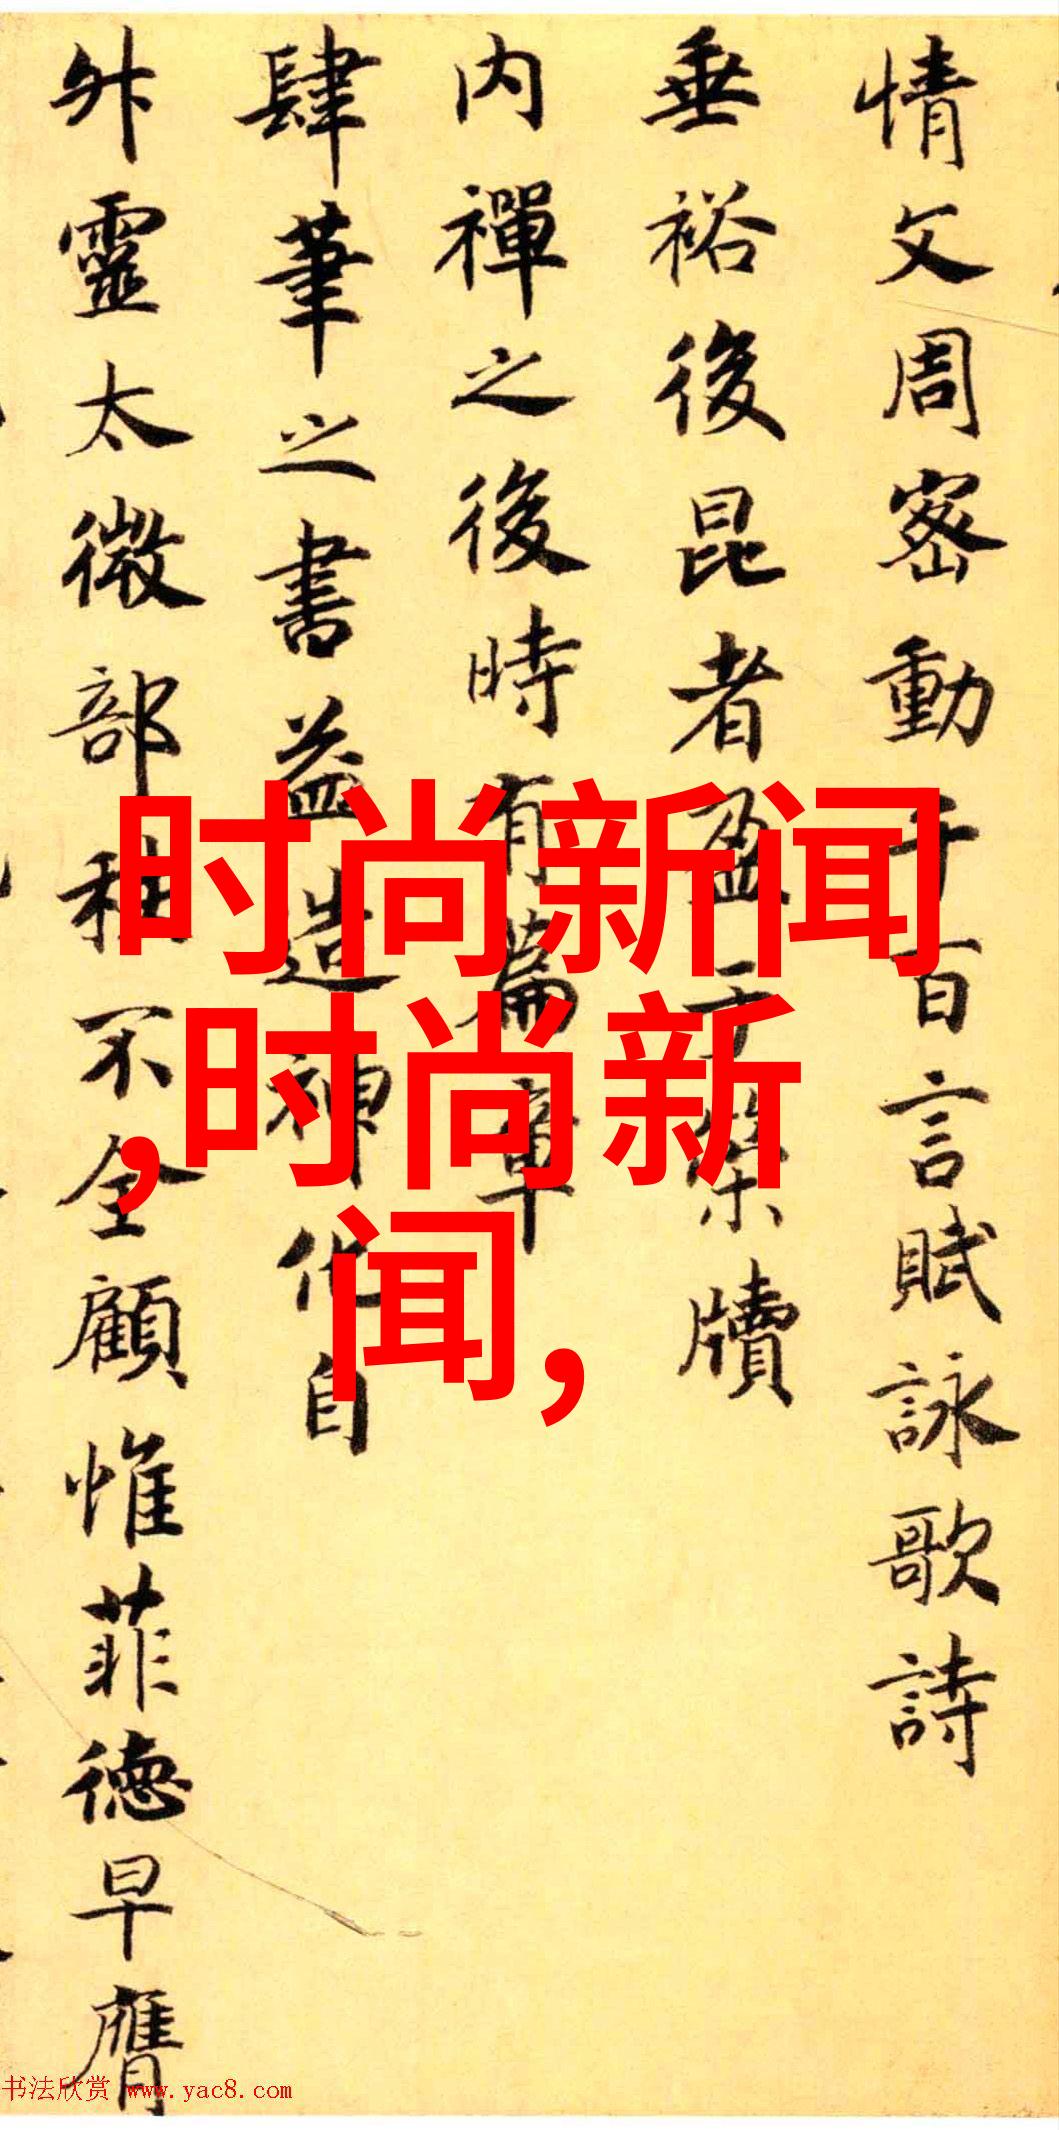 情文周密動千百言賦詠歌詩
垂裕後昆者盈于牘
内禪之後時有篇章
肆筆之書益造神化自
升靈太微部秩不全顧惟菲德早膺
时尚新闻
,时尚新
闻,
书法欣赏 www.yac8.com